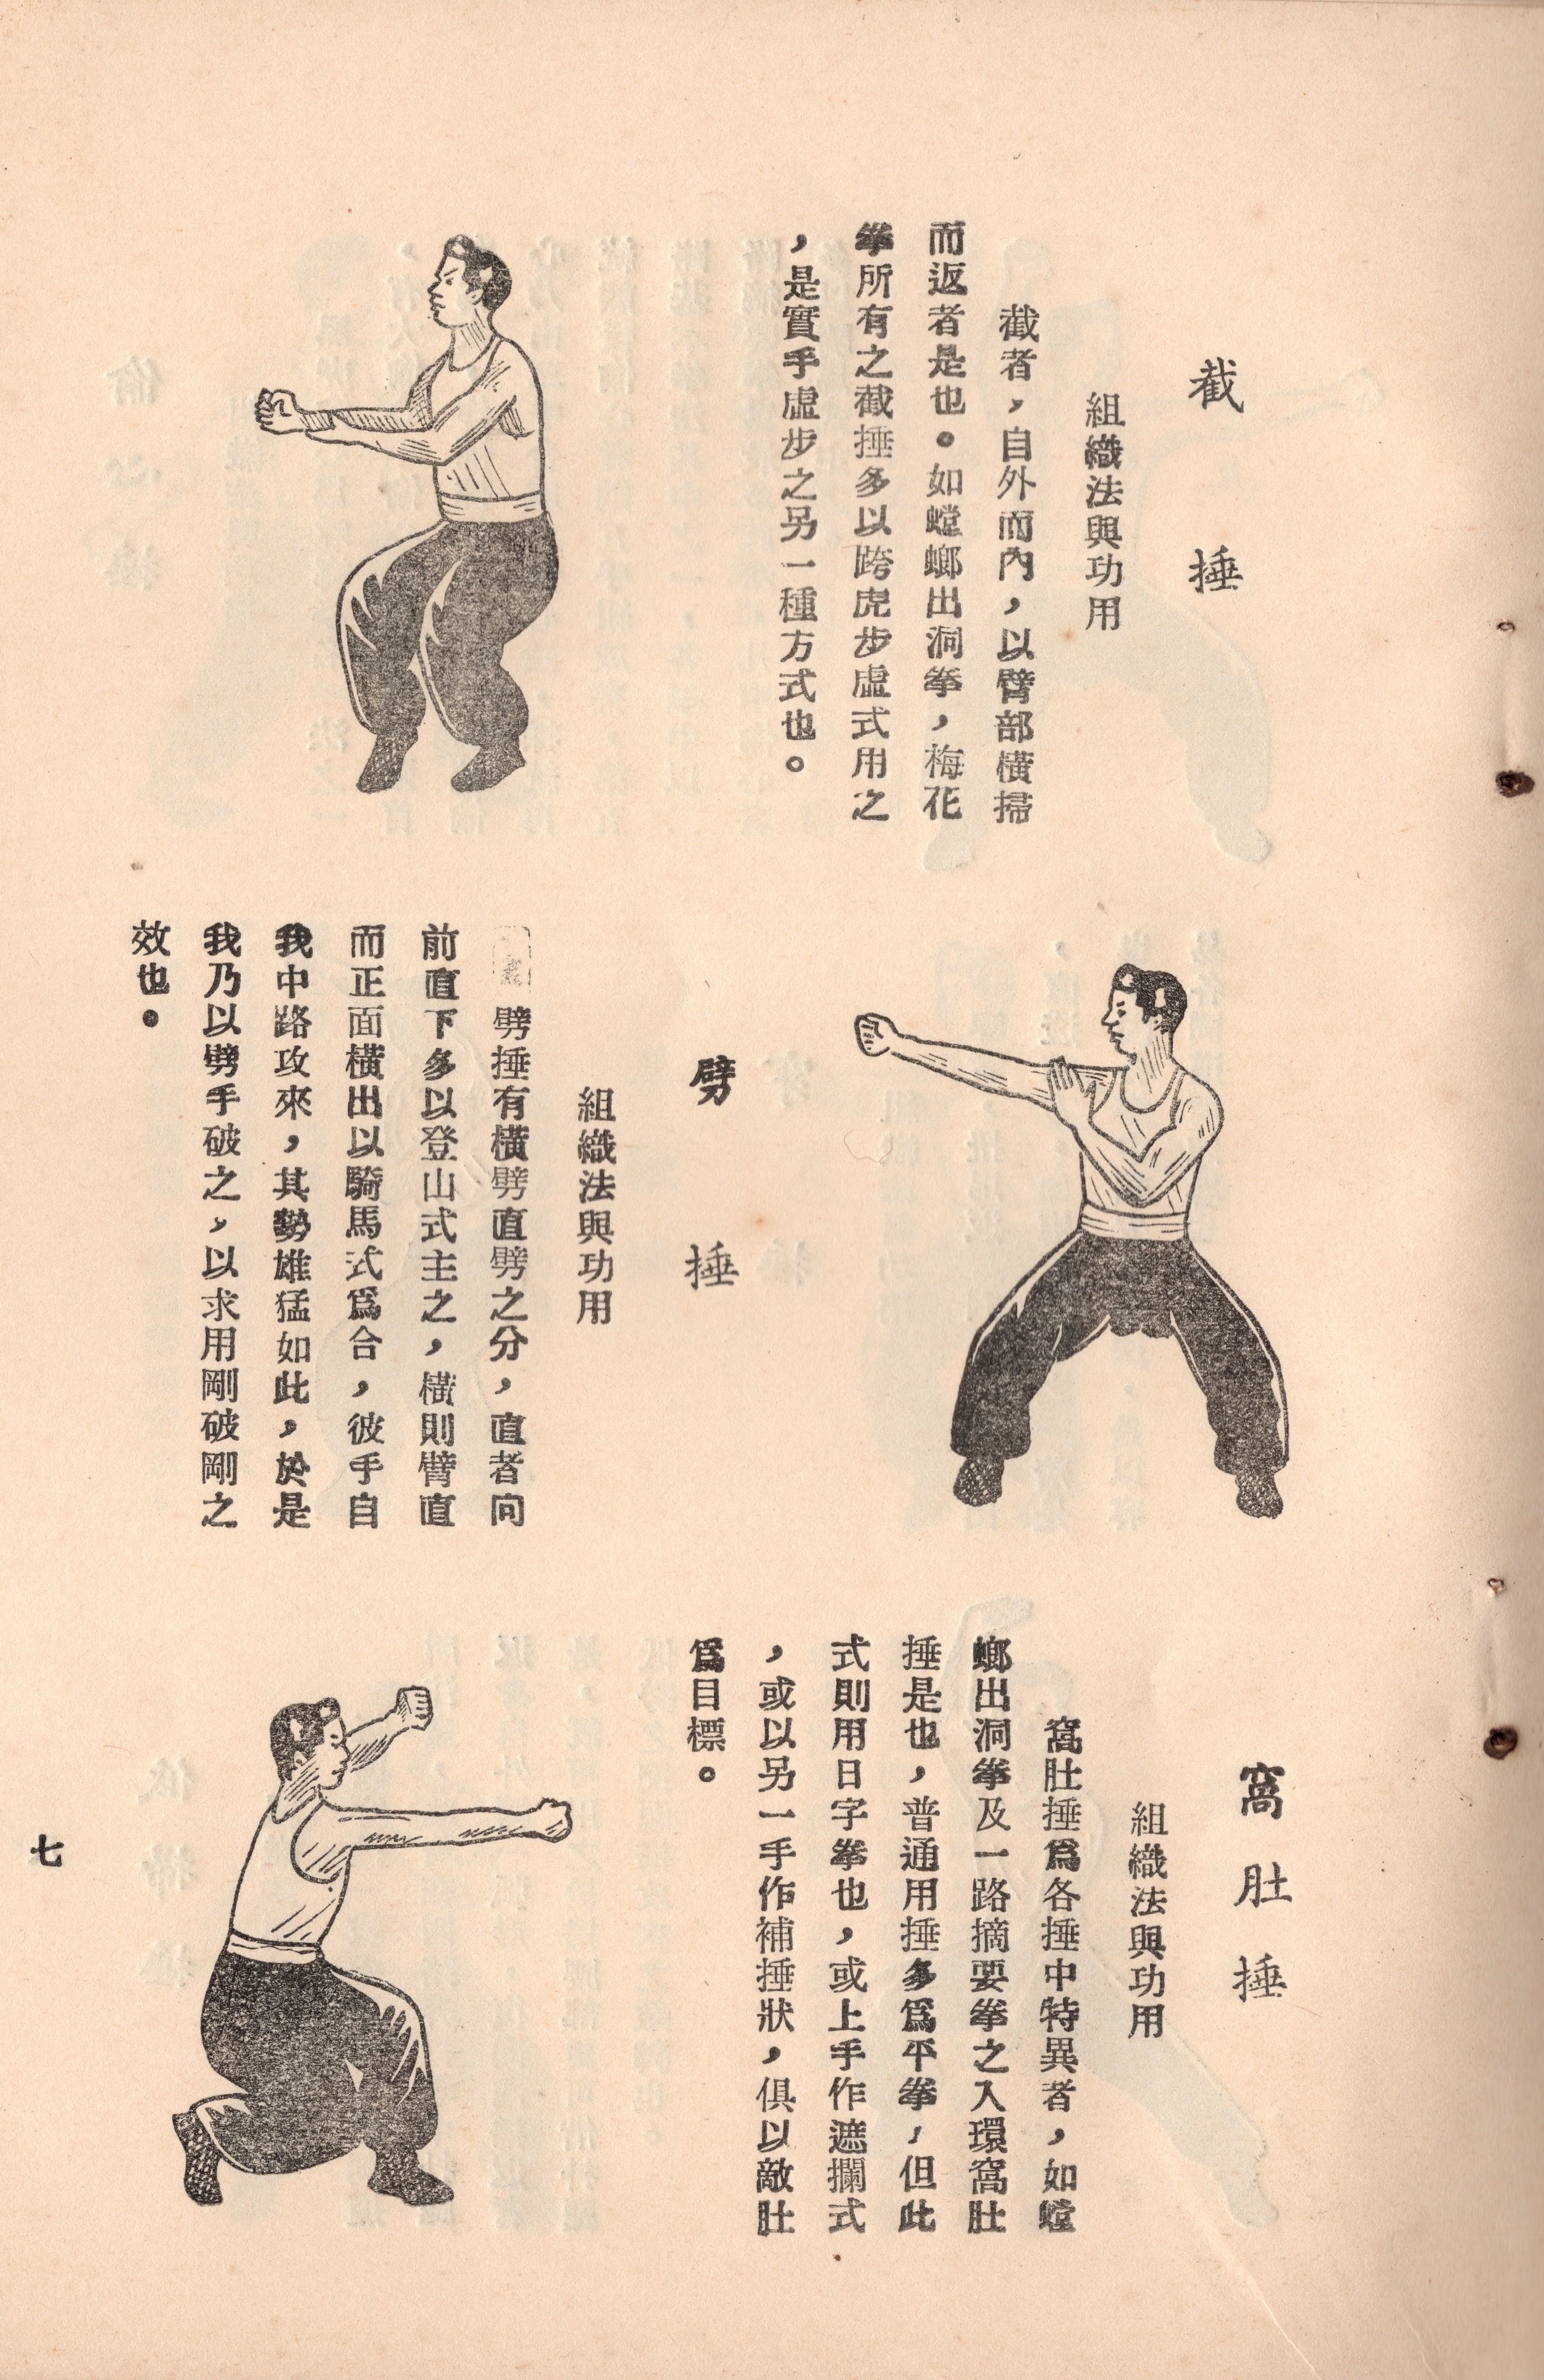 截捶
組織法與功用
截者，自外而內，以臂部橫掃
而返者是也。如螳螂出洞拳，梅花
拳所有之截捶多以跨虎步虛式用之
，是實手虛步之另一種方式也。
劈捶
組織法與功用
劈捶有橫劈直劈之分，直者向
前直下多以登山式主之，橫則臂直
而正面橫出以騎馬式爲合，彼手自
我中路攻來，其勢雄猛如此，於是
我乃以劈手破之，以求用剛破剛之
效也。
窩肚捶
組織法與功用
窩肚捶爲各捶中特異者，如螳
螂出洞拳及一路摘要拳之入環窩肚
捶是也，普通用捶多爲平拳，但此
式則用日字拳也，或上手作遮攔式
，或以另一手作補捶狀，俱以敵肚
爲目標。
七